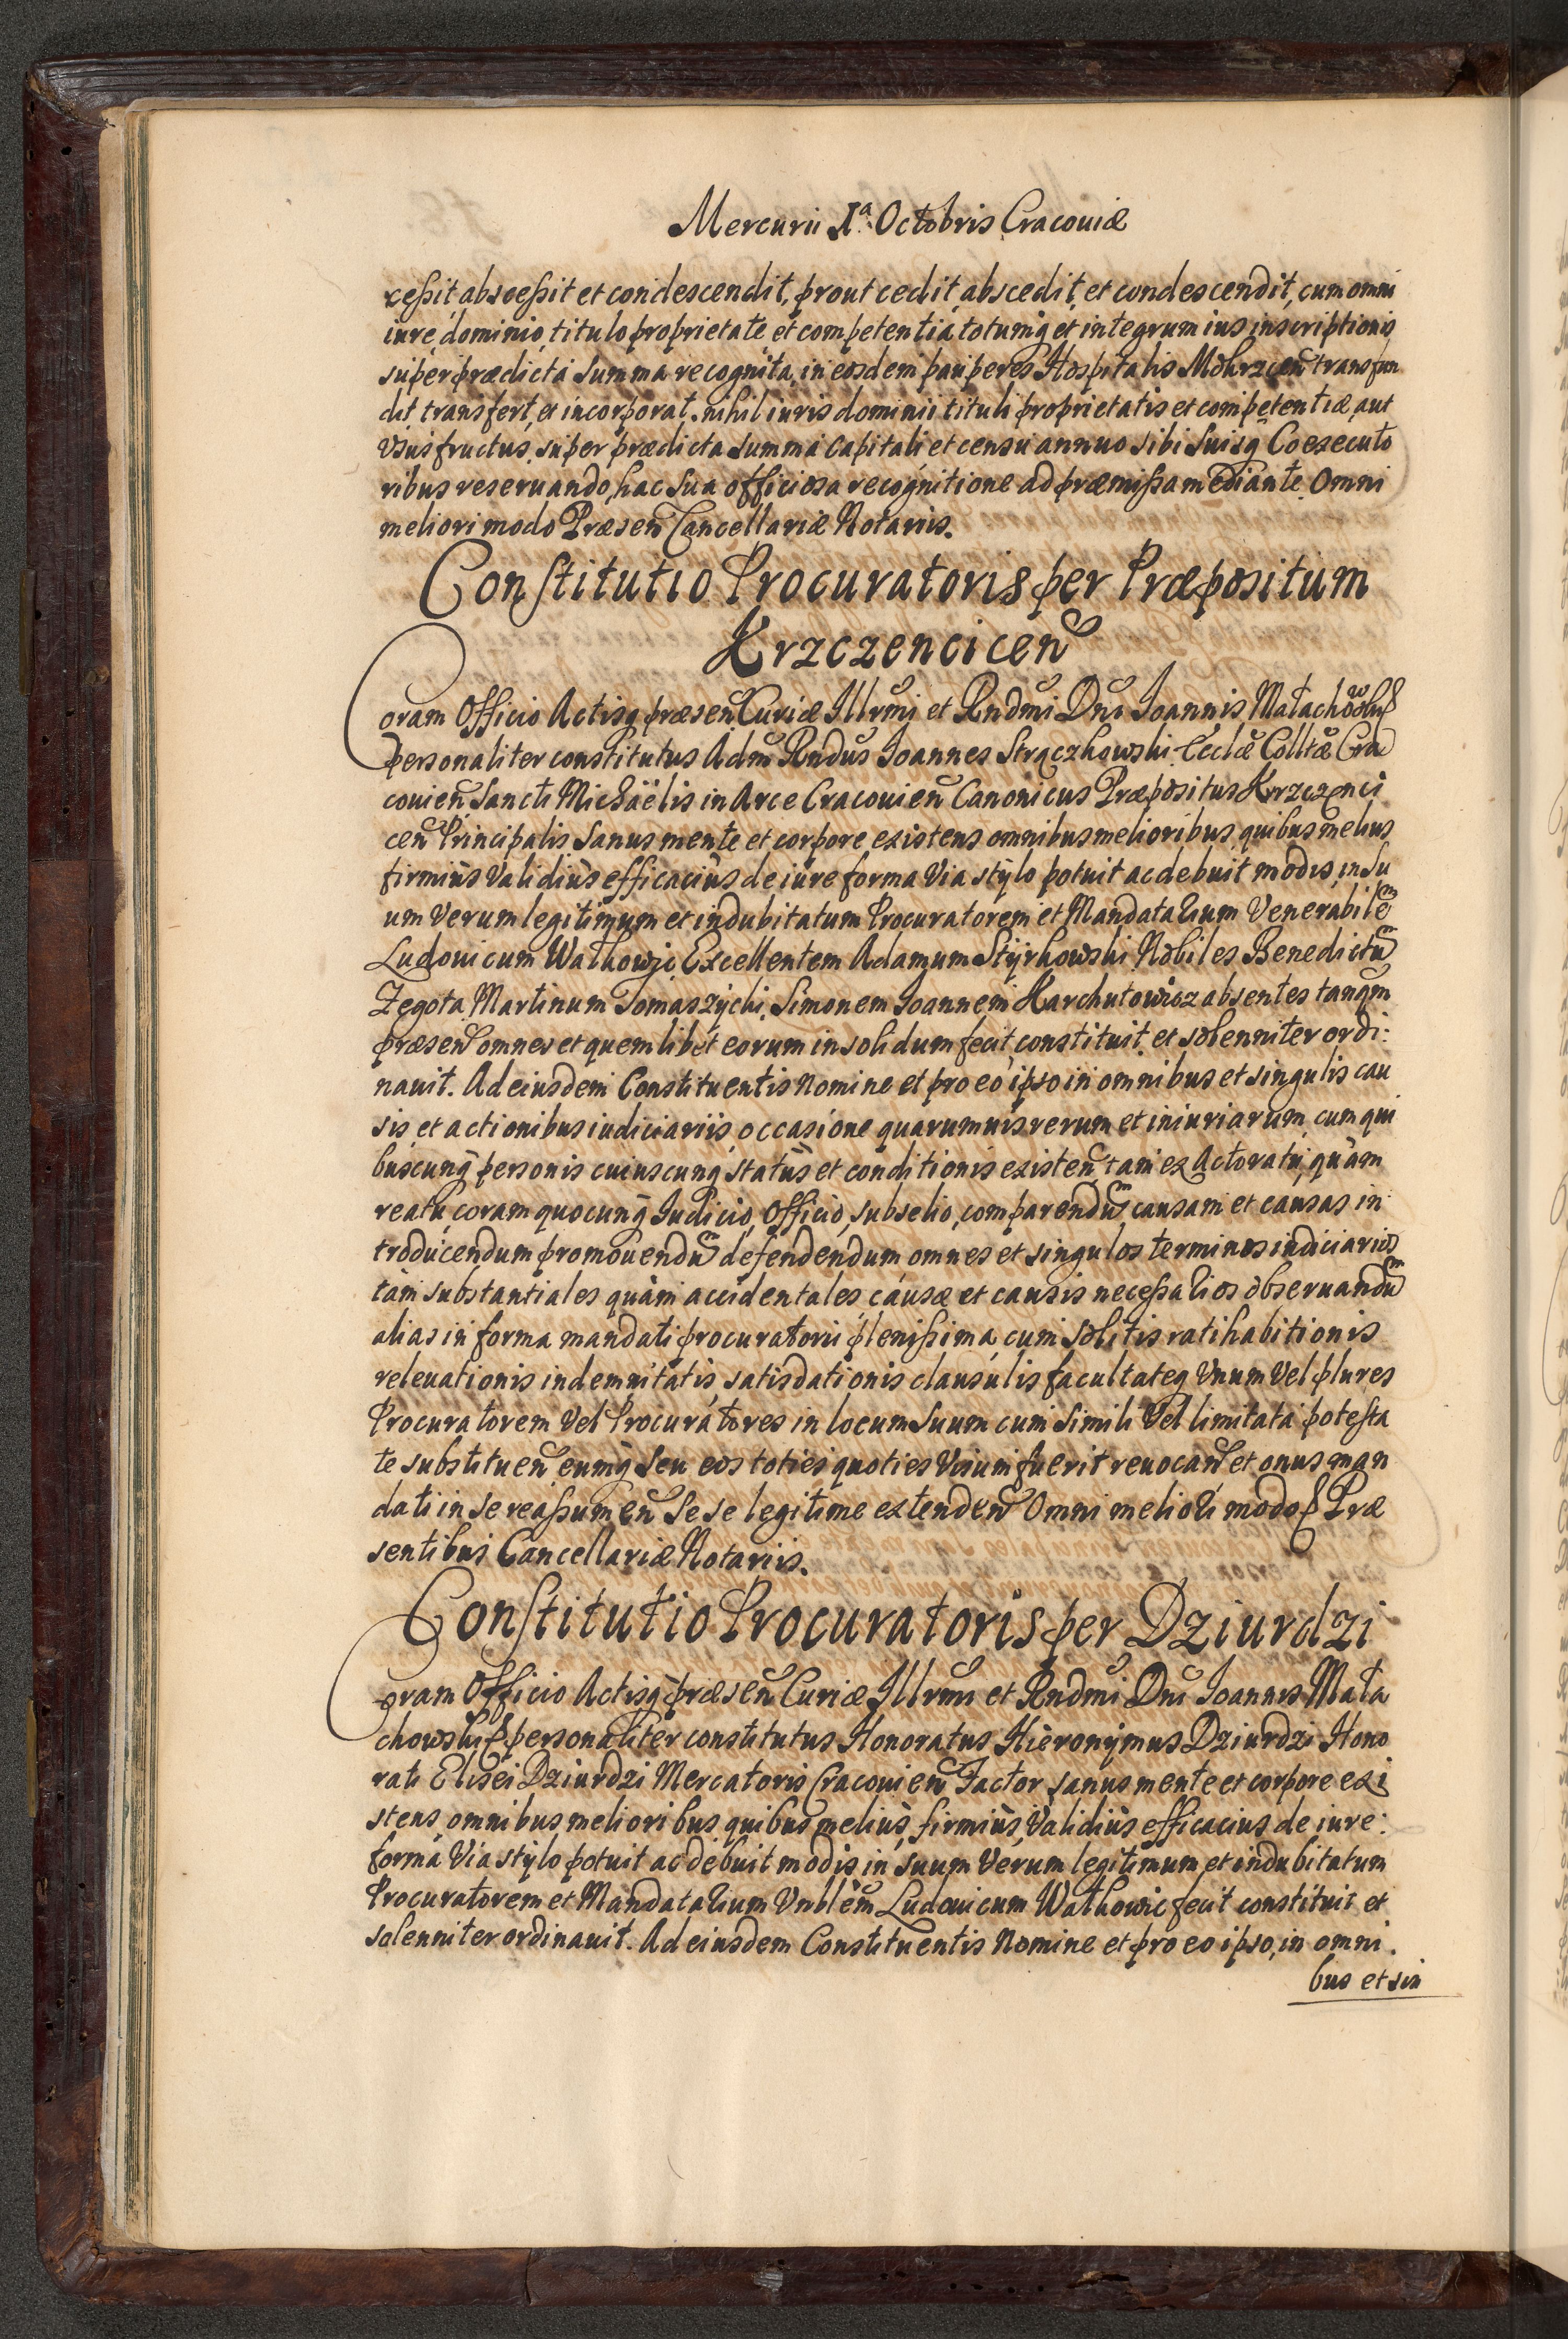 Mercurii Iª Octobris Cracouiæ
cessit, abscessit et condescendit, prout cedit, abscedit, et condescendit, cum omni
iure, dominio, titulo proprietate et competentiâ totumq̃ et integrum ius inscriptionis
super prædictâ Summa recognita, in eosdem pauperes Hospitalis Mokrzceñ transfun
dit, transfert, et incorporat. nihil iuris dominii tituli proprietatis et competentiæ, aut
Vsusfructus, super prædicta Summa Capitali et censu annuo sibi Suisq̃ Coexecuto
ribus reseruando, hac Sua officiosa recognitione ad præmissa mediante. Omni
meliori modo Præseñ Cancellariæ Notariis.
Constitutio Procuratoris per Præpositum
Krzczenciceñ
Coram Officio Actisq̃ præseñ Curiæ Illrmi et Rndmi Dni Ioannis Małachowski
personaliter constitutus Adm Rndus Ioannes Strączkowski Ecclæ Colltæ Cra
couieñ Sancti Michaëlis in Arce Cracouieñ Canonicus Præpositus Krzczenci
ceñ Principalis Sanus mente et corpore existens omnibus melioribus, quibus melius
firmiùs validiùs efficaciùs de iure forma Via stylo potuit ac debuit modis, in Su
um Verum legitimum et indubitatum Procuratorem et Mandatarium Venerabilem
Ludouicum Walkowic Excellentem Adamum Styrkowski Nobiles Benedictum
Zegota Martinum Tomaszycki, Simonem Ioannem Karchutowicz absentes tanqm
præseñ omnes et quemlibet eorum in solidum fecit, constituit, et solenniter ordi:
nauit. Ad eiusdem Constituentis Nomine et pro eo ipso in omnibus et singulis cau
sis, et actionibus iudiciariis, occasione quarumuis rerum et iniuriarum, cum qui
buscunq̃ personis cuiuscunq̃ statûs et conditionis existeñ tam ex Actoratu, quàm
reatu coram quocunq̃ Iudicio, Officio, subselio, comparendum causam et causas in
troducendum promouendum defendendum omnes et singulos terminos iudiciarios
tàm substantiales quàm accidentales, causæ et causis necessarios obseruandum
alias in forma mandati procuratorii plenissima, cum Solitis ratihabitionis
releuationis indemnitatis, satisdationis clausulis facultateq̃ Vnum Vel plures
Procuratorem Vel Procuratores in locum Suum cum Simili Vel limitata potesta
te substitueñ eumq̃ Seu eos toties quoties Visum fuerit reuocañ et onus man
dati in se reassumeñ Se se legitime extendeñ Omni meliori modo Præ
sentibus Cancellariæ Notariis.
Constitutio Procuratoris per Dziurdzi
Coram Officio Actisq̃ præseñ Curiæ Illrmi et Rndmi Dni Ioannis Mała
chowski personaliter constitutus Honoratus Hieronymus Dziurdzi Hono
rati Elisei Dziurdzi Mercatoris Cracouieñ Factor sanus mente et corpore exi
stens, omnibus melioribus quibus meliùs, firmiùs, Validiùs efficacius de iure:
formâ Via stylo potuit ac debuit modis, in suum Verum legitimum et indubitatum
Procuratorem et Mandatarium Vnblem Ludouicum Walkowic fecit constituit et
solenniter ordinauit. Ad eiusdem Constituentis Nomine et pro eo ipso, in omni.
bus et sin